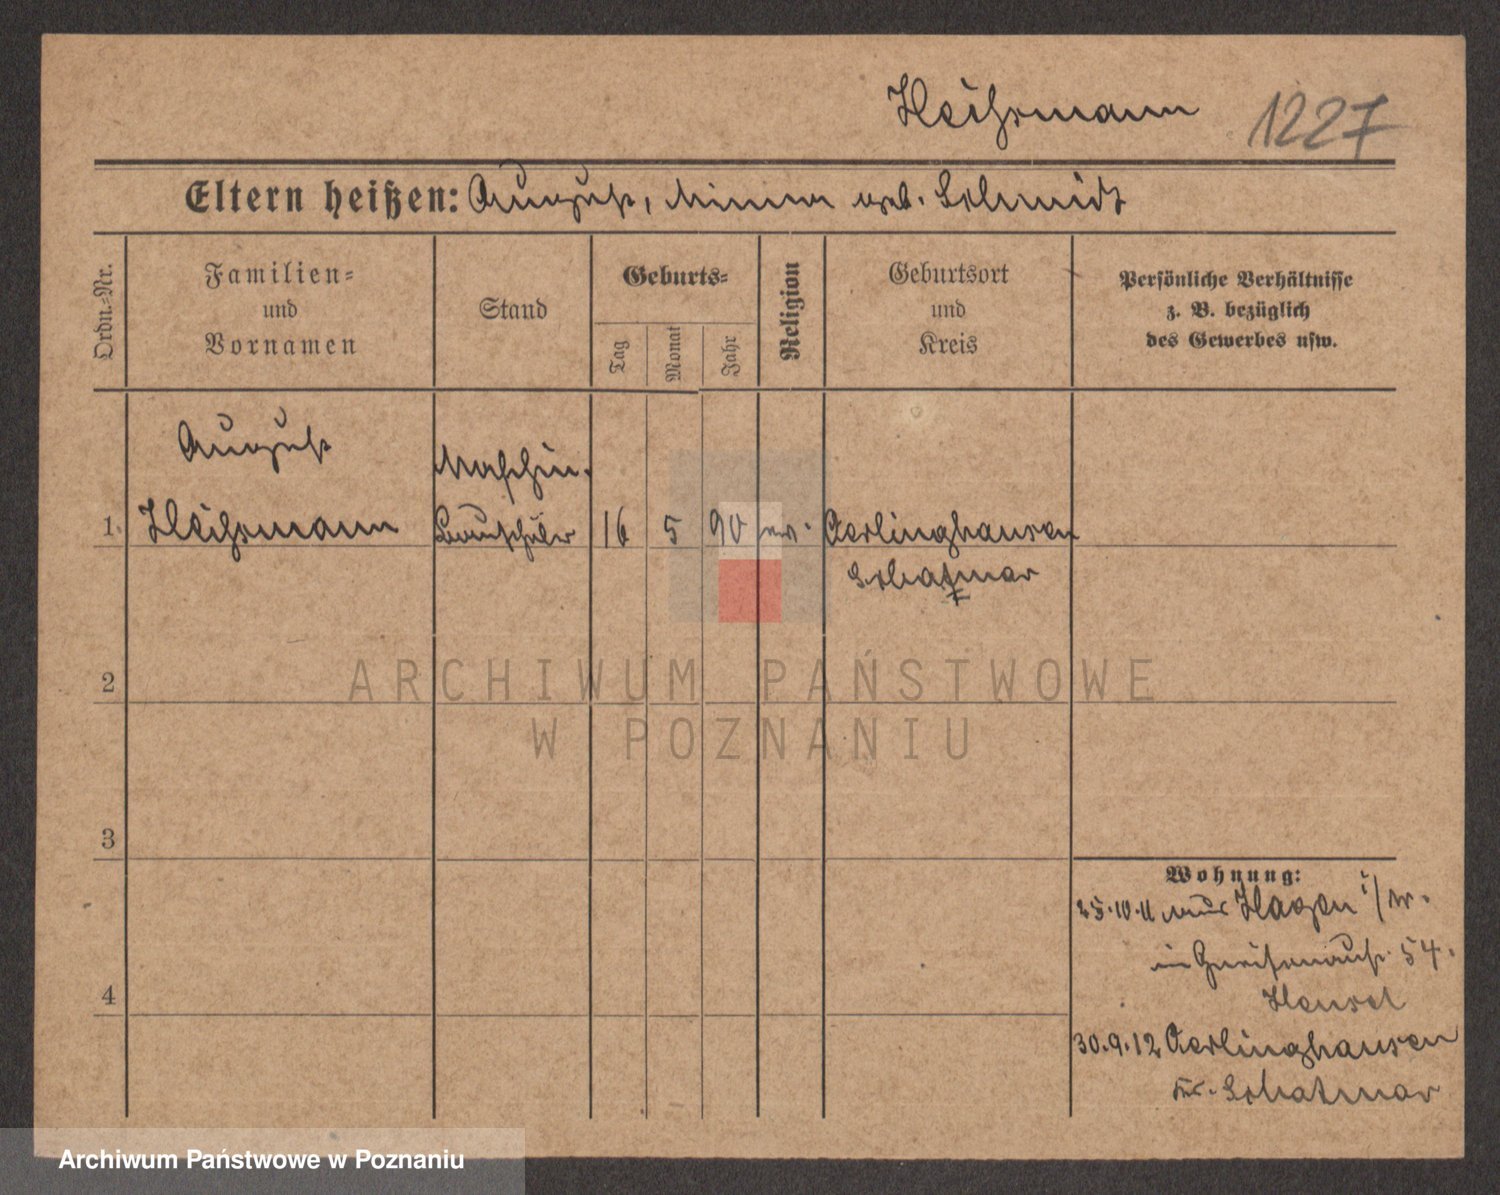 Heihsmann 1227
Eltern heißen: August, Minna geb. Schmidt
Ordn.-Nr.
Familien-
und
Vornamen
Stand
Geburts-
Tag
Monat
Jahr
Religion
Geburtsort
und
Kreis
Persönliche Verhältnisse
z. B. bezüglich
des Gewerbes usw.
August
Maschin.
1. Heihsmann Bauschüler 16 5 90 ev. Oerlinghausen
Schatmar
2
3
4
Wohnung:
25.10.11 aus Hagen i/W.
in Gneisenaustr. 54.
Hensel
30.9.12 Oerlinghausen
Kr. Schatmar
ARCHIWUM PAŃSTWOWE
W POZNANIU
Archiwum Państwowe w Poznaniu